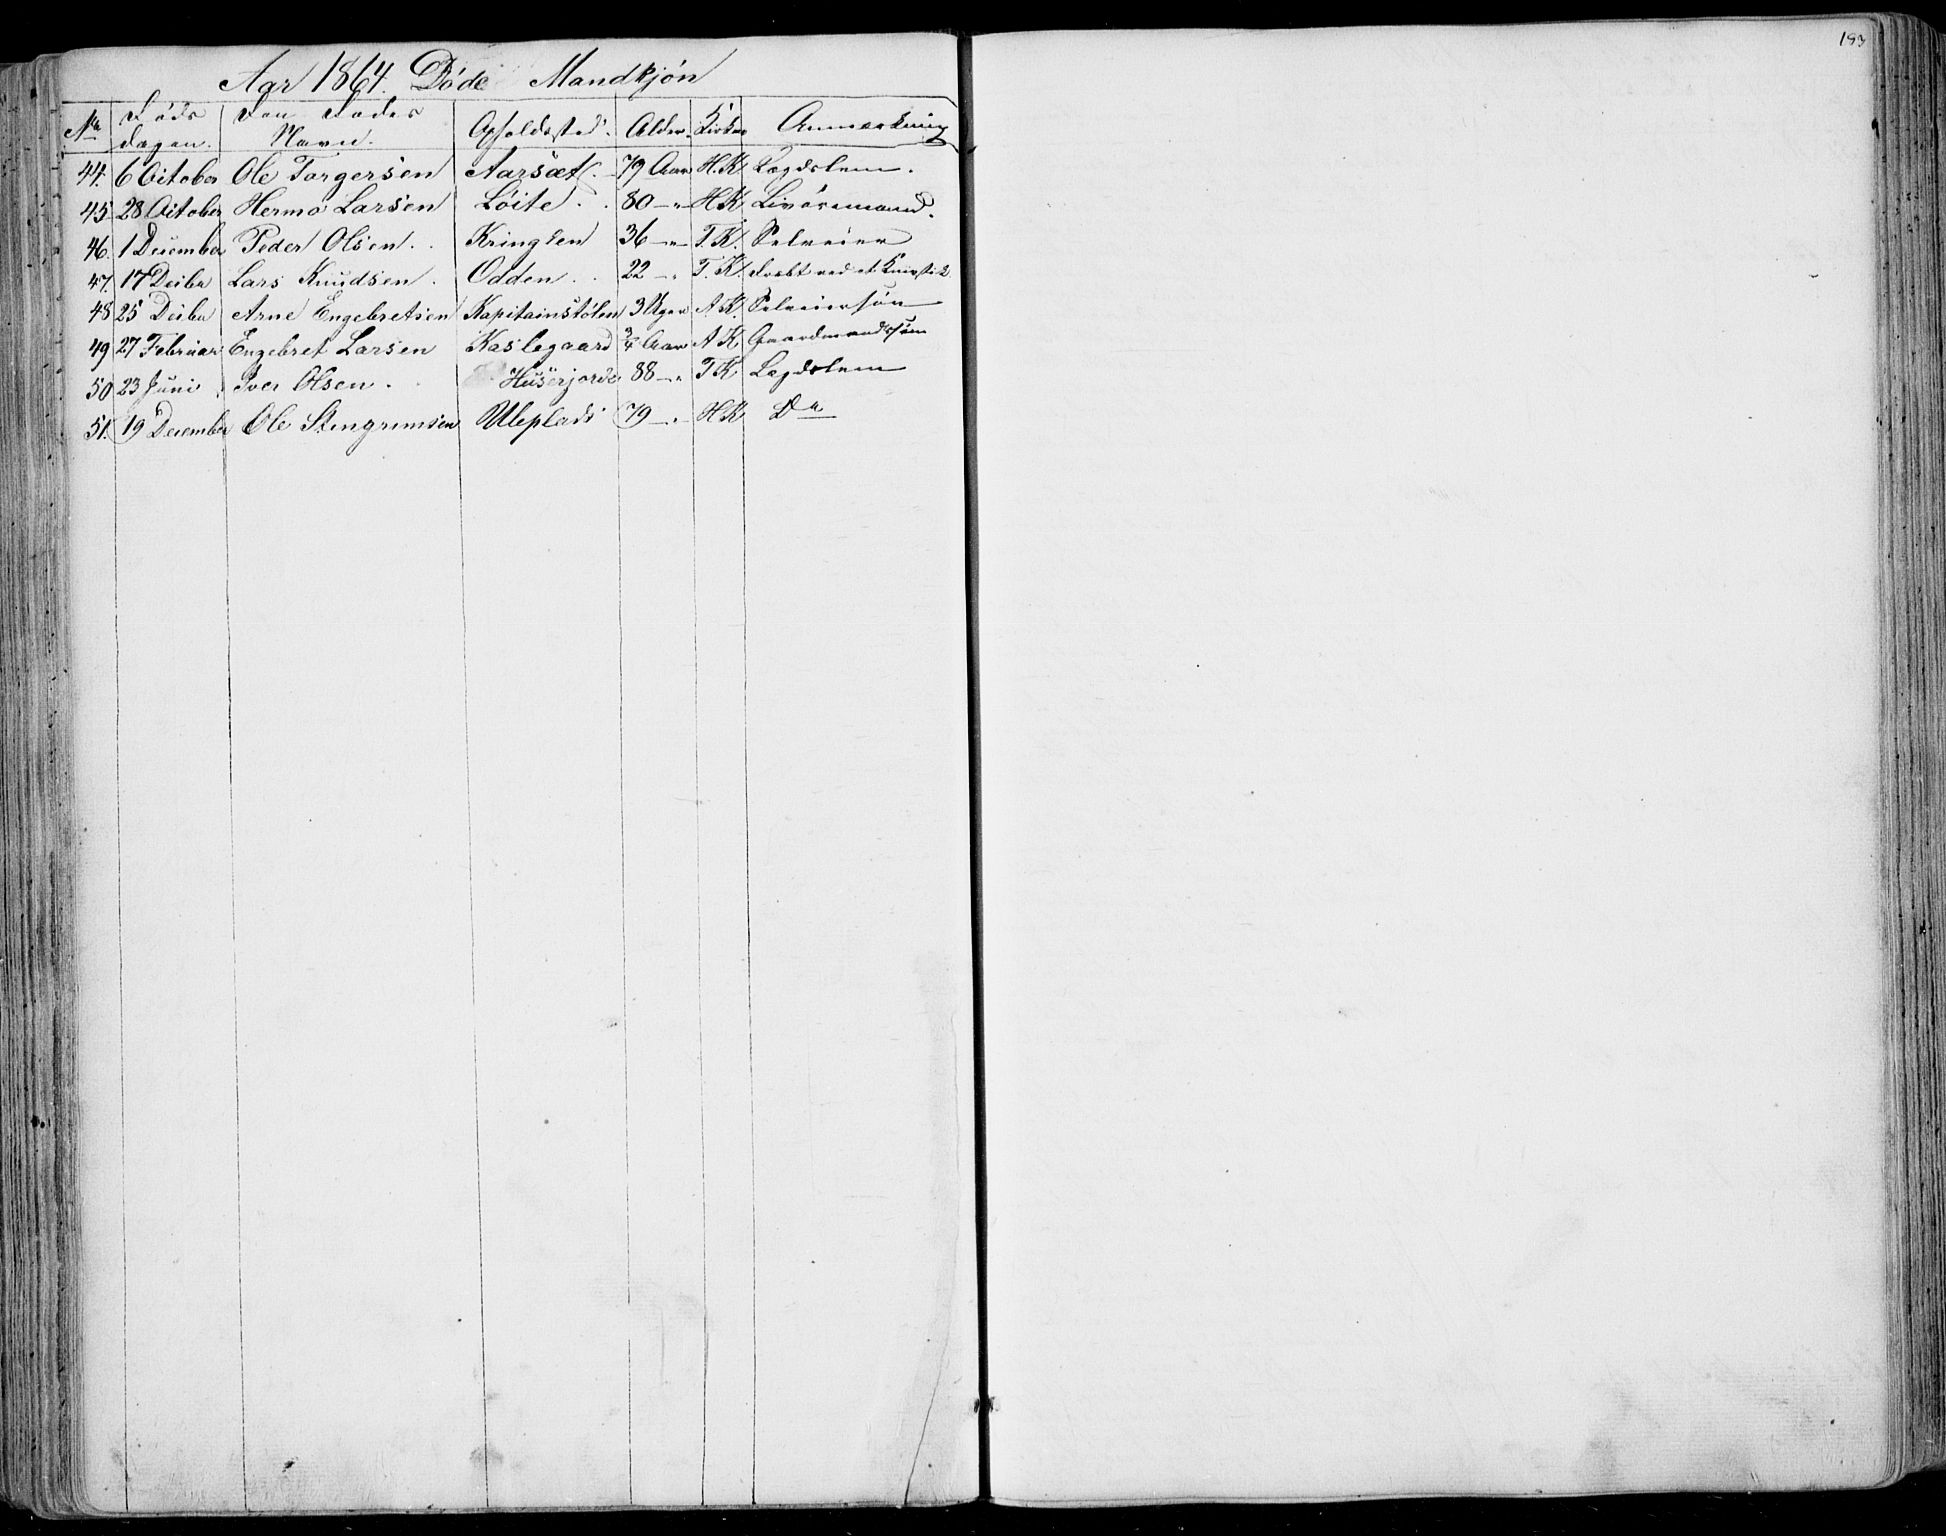 193
Aar 1864. Døde Mandkjøn
No Døds dagen. Den Dødes Navn. Opholdssted. Alder. Kirke Anmærkning
44. 6 October Ole Torgersen Aarsæt. 79 Aar H.K. Lægdslem.
45 28 October Hermo Larsen Løite. 80 -"- H.K. Livøremand.
46. 1 December Peder Olsen. Kringlen 36 -"- T.K. Selveier
47. 17 Decbr Lars Knudsen. Odden. 22 -"- T.K. Dræbt ved et Knivstik
48 25 Decbr Arne Engebretsen Kapitainstølen 3 Uger A.K. Selveiersøn
49 27 Februar Engebret Larsen Kaslegaard 3/4 Aar A K Gaardmandssøn
50 23 Juni Iver Olsen. Huserjordet 88 -"- T K Lægdslem
51. 19 December Ole Stengrimsen Uleplads 79 -"- H K Do